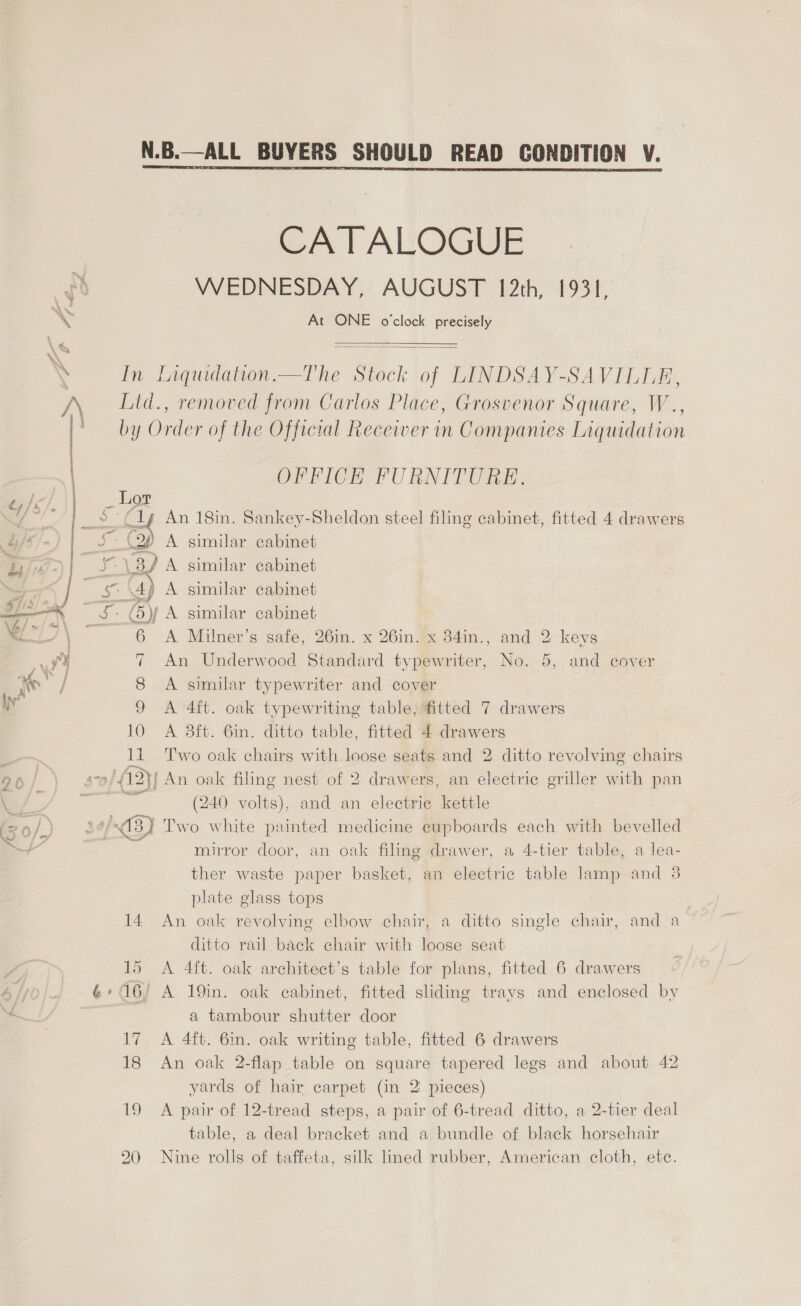 N.B.—ALL BUYERS SHOULD READ CONDITION V.
CATALOGUE
WEDNESDAY, AUGUST 12th, 1931,
At ONE o'clock precisely
In Liquidation.—The Stock of LINDSAY-SAVILLE,
Ltd., removed from Carlos Place, Grosvenor Square, W.,
by Order of the Official Receiver in Companies Liquidation
OFFICE FURNITURE.
Lot
1 An 18in. Sankey-Sheldon steel filing cabinet, fitted 4 drawers
2 A similar cabinet
3 A similar cabinet
4 A similar cabinet
5 A similar cabinet
6 A Milner's safe, 26in. x 26in. x 34in., and 2 keys
7 An Underwood Standard typewriter, No. 5, and cover
8 A similar typewriter and cover
9 A 4ft. oak typewriting table, fitted 7 drawers
10 A 3ft. 6in. ditto table, fitted 4 drawers
11 Two oak chairs with loose seats and 2 ditto revolving chairs
12 An oak filing nest of 2 drawers, an electric griller with pan
(240 volts), and an electric kettle
13 Two white painted medicine cupboards each with bevelled
mirror door, an oak filing drawer, a 4-tier table, a lea-
ther waste paper basket, an electric table lamp and 3
plate glass tops
14 An oak revolving elbow chair, a ditto single chair, and a
ditto rail back chair with loose seat
15 A 4ft. oak architect's table for plans, fitted 6 drawers
16 A 19in. oak cabinet, fitted sliding trays and enclosed by
a tambour shutter door
17 A 4ft. 6in. oak writing table, fitted 6 drawers
18 An oak 2-flap table on square tapered legs and about 42
yards of hair carpet (in 2 pieces)
19 A pair of 12-tread steps, a pair of 6-tread ditto, a 2-tier deal
table, a deal bracket and a bundle of black horsehair
20 Nine rolls of taffeta, silk lined rubber, American cloth, etc.